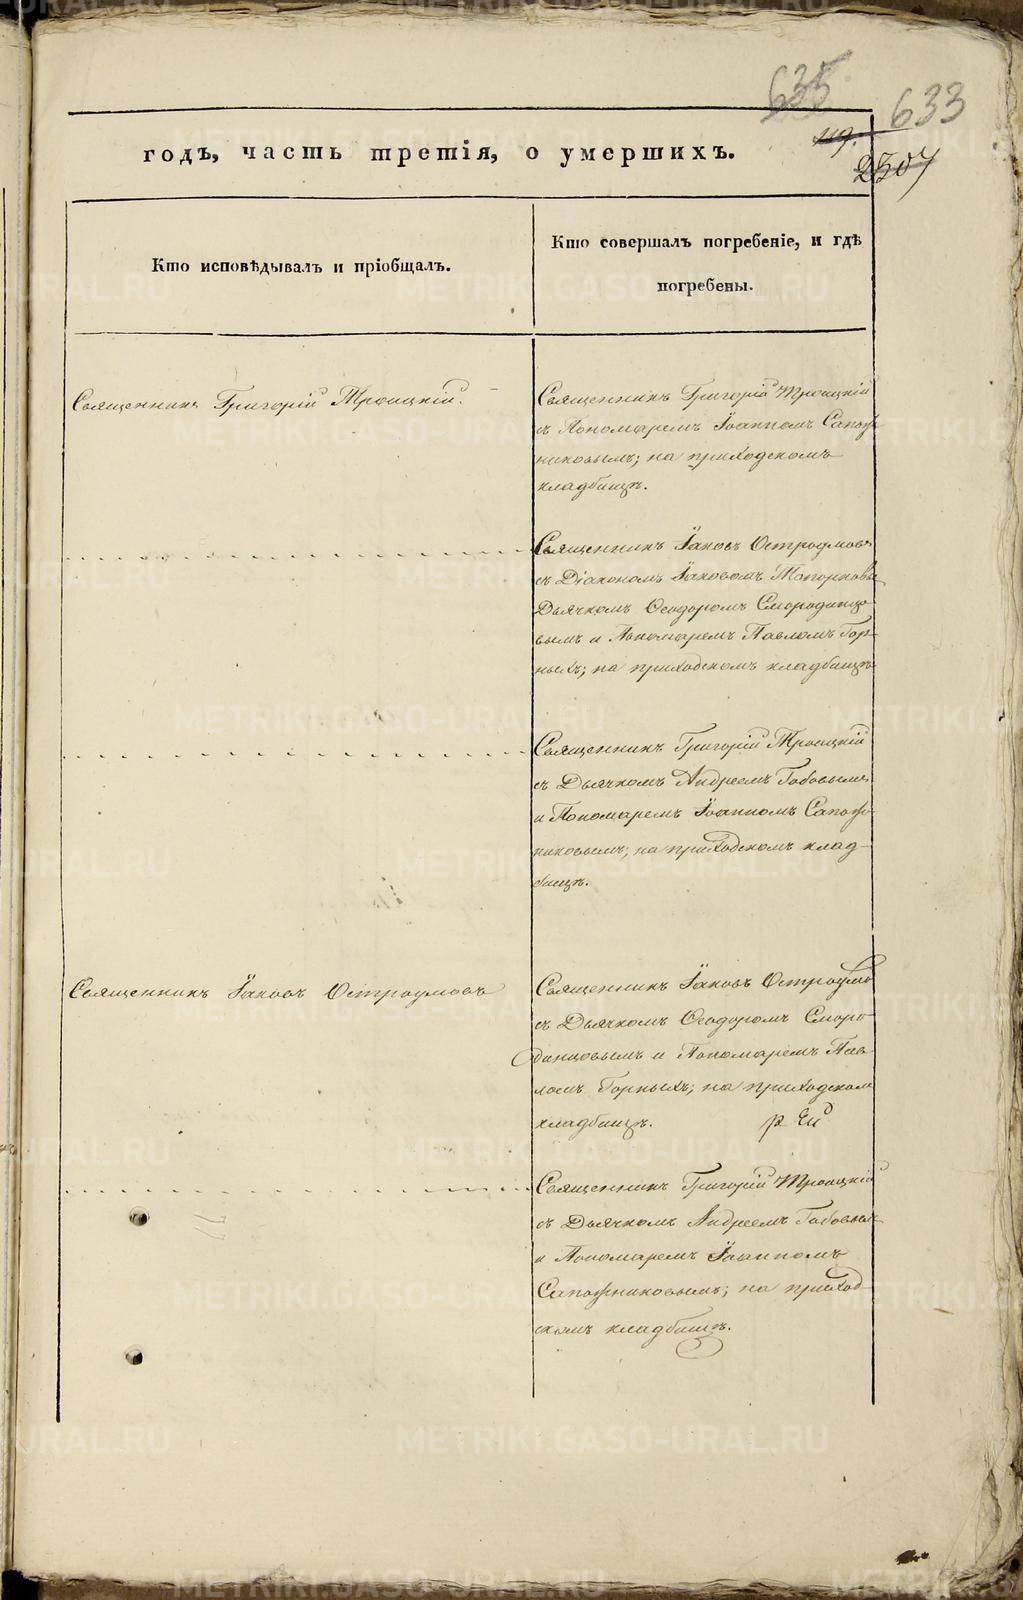 635
633
119.
2507
годъ, часть третія, о умершихъ.
Кто исповѣдывалъ и пріобщалъ.
Кто совершалъ погребеніе, и гдѣ
погребены.
Священникъ Григорій Троицкій.
Священникъ Григорій Троицкій
съ Пономаремъ Іоанномъ Сапож
никовымъ; на приходскомъ
кладбищѣ.
Священникъ Іаковъ Остроумовъ
съ Діакономъ Іаковомъ Топорковы
Дьячкомъ Ѳеодоромъ Смородинцо
вымъ и Пономаремъ Павломъ Гор-
ныхъ; на приходскомъ кладбищѣ
Священникъ Григорій Троицкій
съ Дьячкомъ Андреемъ Бабовымъ
и Пономаремъ Іоанномъ Сапож-
никовымъ; на приходскомъ клад-
бищѣ.
Священникъ Іаковъ Остроумовъ
Священникъ Іаковъ Остроумо
съ Дьячкомъ Ѳеодоромъ Сморо-
динцовымъ и Пономаремъ Пав-
ломъ Горныхъ; на приходском
кладбищѣ.
Священникъ Григорій Троицкій
съ Дьячкомъ Андреемъ Бабовым
и Пономаремъ Іоанномъ
Сапожниковымъ; на приход-
скомъ кладбищѣ.
METRIKI.GASO-URAL.RU